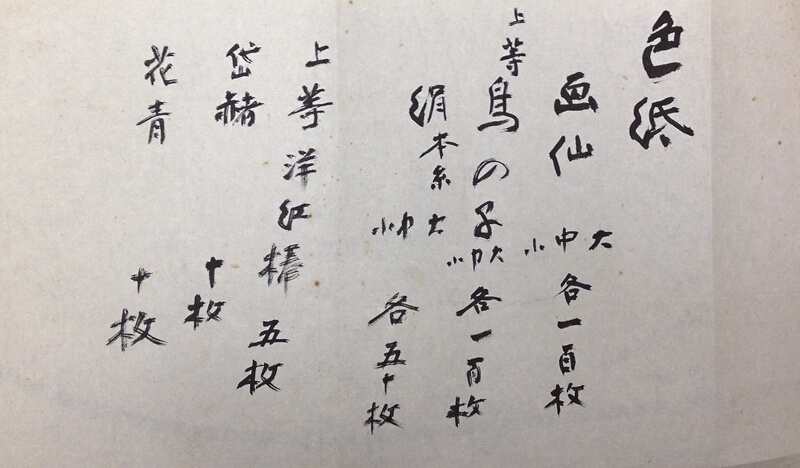 色紙
画仙 大中小 各一百枚
上等鳥の子 大中小 各一百枚
絹本糸 大中小 各五十枚
上等洋紅 五枚
岱赭 十枚
花青 十枚